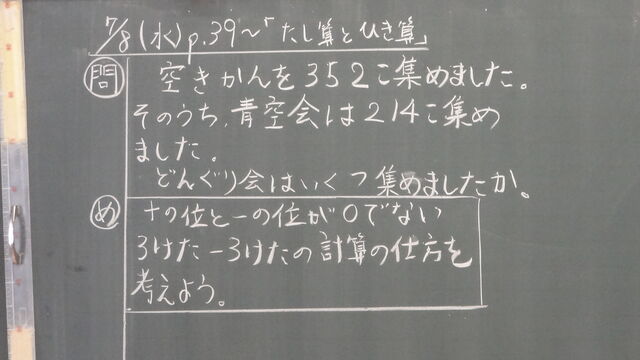 7/8(水)p.39~「たし算とひき算」
問 空きかんを352こ集めました。
そのうち、青空会は214こ集め
ました。
どんぐり会はいくつ集めましたか。
め 十の位と一の位が0でない
3けた-3けたの計算の仕方を
考えよう。